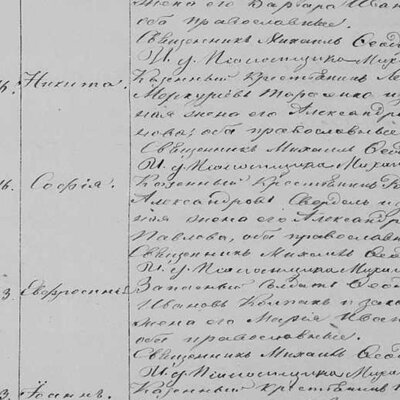 жена его Варвара Иван
оба православные.
Священникъ Михаилъ Ѳеод
И. д. Псаломщика Михаи
Никита. Казенный крестьянинъ
Меркуріевъ Тарасенко и
ная жена его Александра
нова, оба православные
Священникъ Михаилъ Ѳеод
И. д. Псаломщика Михаи
Софія. Казенный крестьянинъ
Александровъ Свердель и
ная жена его Александра
Павлова, оба православн
Священникъ Михаилъ Ѳеод
И. д. Псаломщика Михаи
3 Евфросинія Запасный Солдатъ Ѳеод
Ивановъ Колпакъ и зако
жена его Марія Иван
оба православные.
Священникъ Михаилъ Ѳеод
И. д. Псаломщика Михаи
3. Іоаннъ. Казенный крестьянинъ